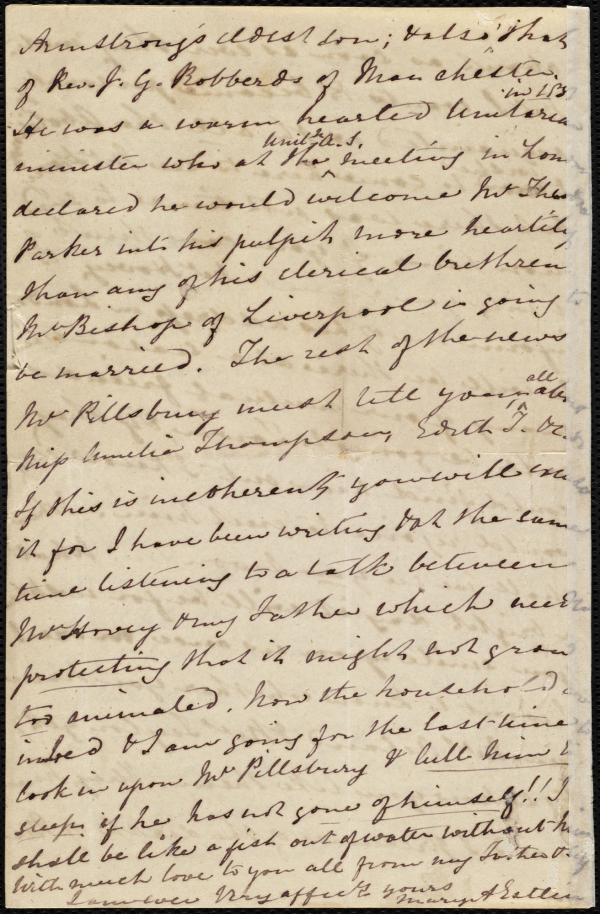 Armstrong's eldest son; & also that
of Rev. J. G. Robberds of Manchester.
He was a warm hearted Unitaria
in 185
minister who at the Unitn. A.S. meeting in Lon
declared he would welcome Mr Theo
Parker into his pulpit more heartily
than any of his clerical brethren
Mr Bishop of Liverpool is going
be married. The rest of the news
Mr Pillsbury must tell you, all abt
Miss Amelia Thompson, Edith T. &c.
If this is incoherent you will exc
it for I have been writing & at the same
time listening to a talk between
Mr Hovey & my Father which need
protecting that it might not grow
too animated. Now the household
in bed & I am going for the last time
look in upon Mr Pillsbury & lull him
sleep, if he has not gone of himself!! I
shall be like a fish out of water without h
With much love to you all from my Father &
I am ever very affectly yours
Mary A Estlin